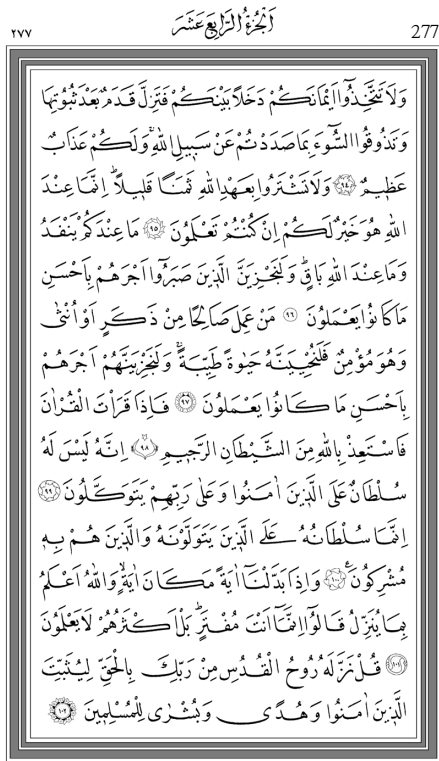 ٢٧٧ اَلْجُزْءُ الرَّابِعَ عَشَرَ 277
وَلَا تَتَّخِذُٓوا اَيْمَانَكُمْ دَخَلًا بَيْنَكُمْ فَتَزِلَّ قَدَمٌ بَعْدَ ثُبُوتِهَا
وَتَذُوقُوا السُّٓوءَ بِمَا صَدَدْتُمْ عَنْ سَبِيلِ اللّٰهِۚ وَلَكُمْ عَذَابٌ
عَظِيمٌ ﴿٩٤﴾ وَلَا تَشْتَرُوا بِعَهْدِ اللّٰهِ ثَمَنًا قَلِيلًاۜ اِنَّمَا عِنْدَ
اللّٰهِ هُوَ خَيْرٌ لَكُمْ اِنْ كُنْتُمْ تَعْلَمُونَ ﴿٩٥﴾ مَا عِنْدَكُمْ يَنْفَدُ
وَمَا عِنْدَ اللّٰهِ بَاقٍۜ وَلَنَجْزِيَنَّ الَّذِينَ صَبَرُٓوا اَجْرَهُمْ بِاَحْسَنِ
مَا كَانُوا يَعْمَلُونَ ﴿٩٦﴾ مَنْ عَمِلَ صَالِحًا مِنْ ذَكَرٍ اَوْ اُنْثٰى
وَهُوَ مُؤْمِنٌ فَلَنُحْيِيَنَّهُ حَيٰوةً طَيِّبَةًۚ وَلَنَجْزِيَنَّهُمْ اَجْرَهُمْ
بِاَحْسَنِ مَا كَانُوا يَعْمَلُونَ ﴿٩٧﴾ فَاِذَا قَرَاْتَ الْقُرْاٰنَ
فَاسْتَعِذْ بِاللّٰهِ مِنَ الشَّيْطَانِ الرَّجِيمِ ﴿٩٨﴾ اِنَّهُ لَيْسَ لَهُ
سُلْطَانٌ عَلَى الَّذِينَ اٰمَنُوا وَعَلٰى رَبِّهِمْ يَتَوَكَّلُونَ ﴿٩٩﴾
اِنَّمَا سُلْطَانُهُ عَلَى الَّذِينَ يَتَوَلَّوْنَهُ وَالَّذِينَ هُمْ بِهِ
مُشْرِكُونَ۟ ﴿١٠٠﴾ وَاِذَا بَدَّلْنَٓا اٰيَةً مَكَانَ اٰيَةٍۙ وَاللّٰهُ اَعْلَمُ
بِمَا يُنَزِّلُ قَالُٓوا اِنَّمَٓا اَنْتَ مُفْتَرٍۜ بَلْ اَكْثَرُهُمْ لَا يَعْلَمُونَ
﴿١٠١﴾ قُلْ نَزَّلَهُ رُوحُ الْقُدُسِ مِنْ رَبِّكَ بِالْحَقِّ لِيُثَبِّتَ
الَّذِينَ اٰمَنُوا وَهُدًى وَبُشْرٰى لِلْمُسْلِمِينَ ﴿١٠٢﴾